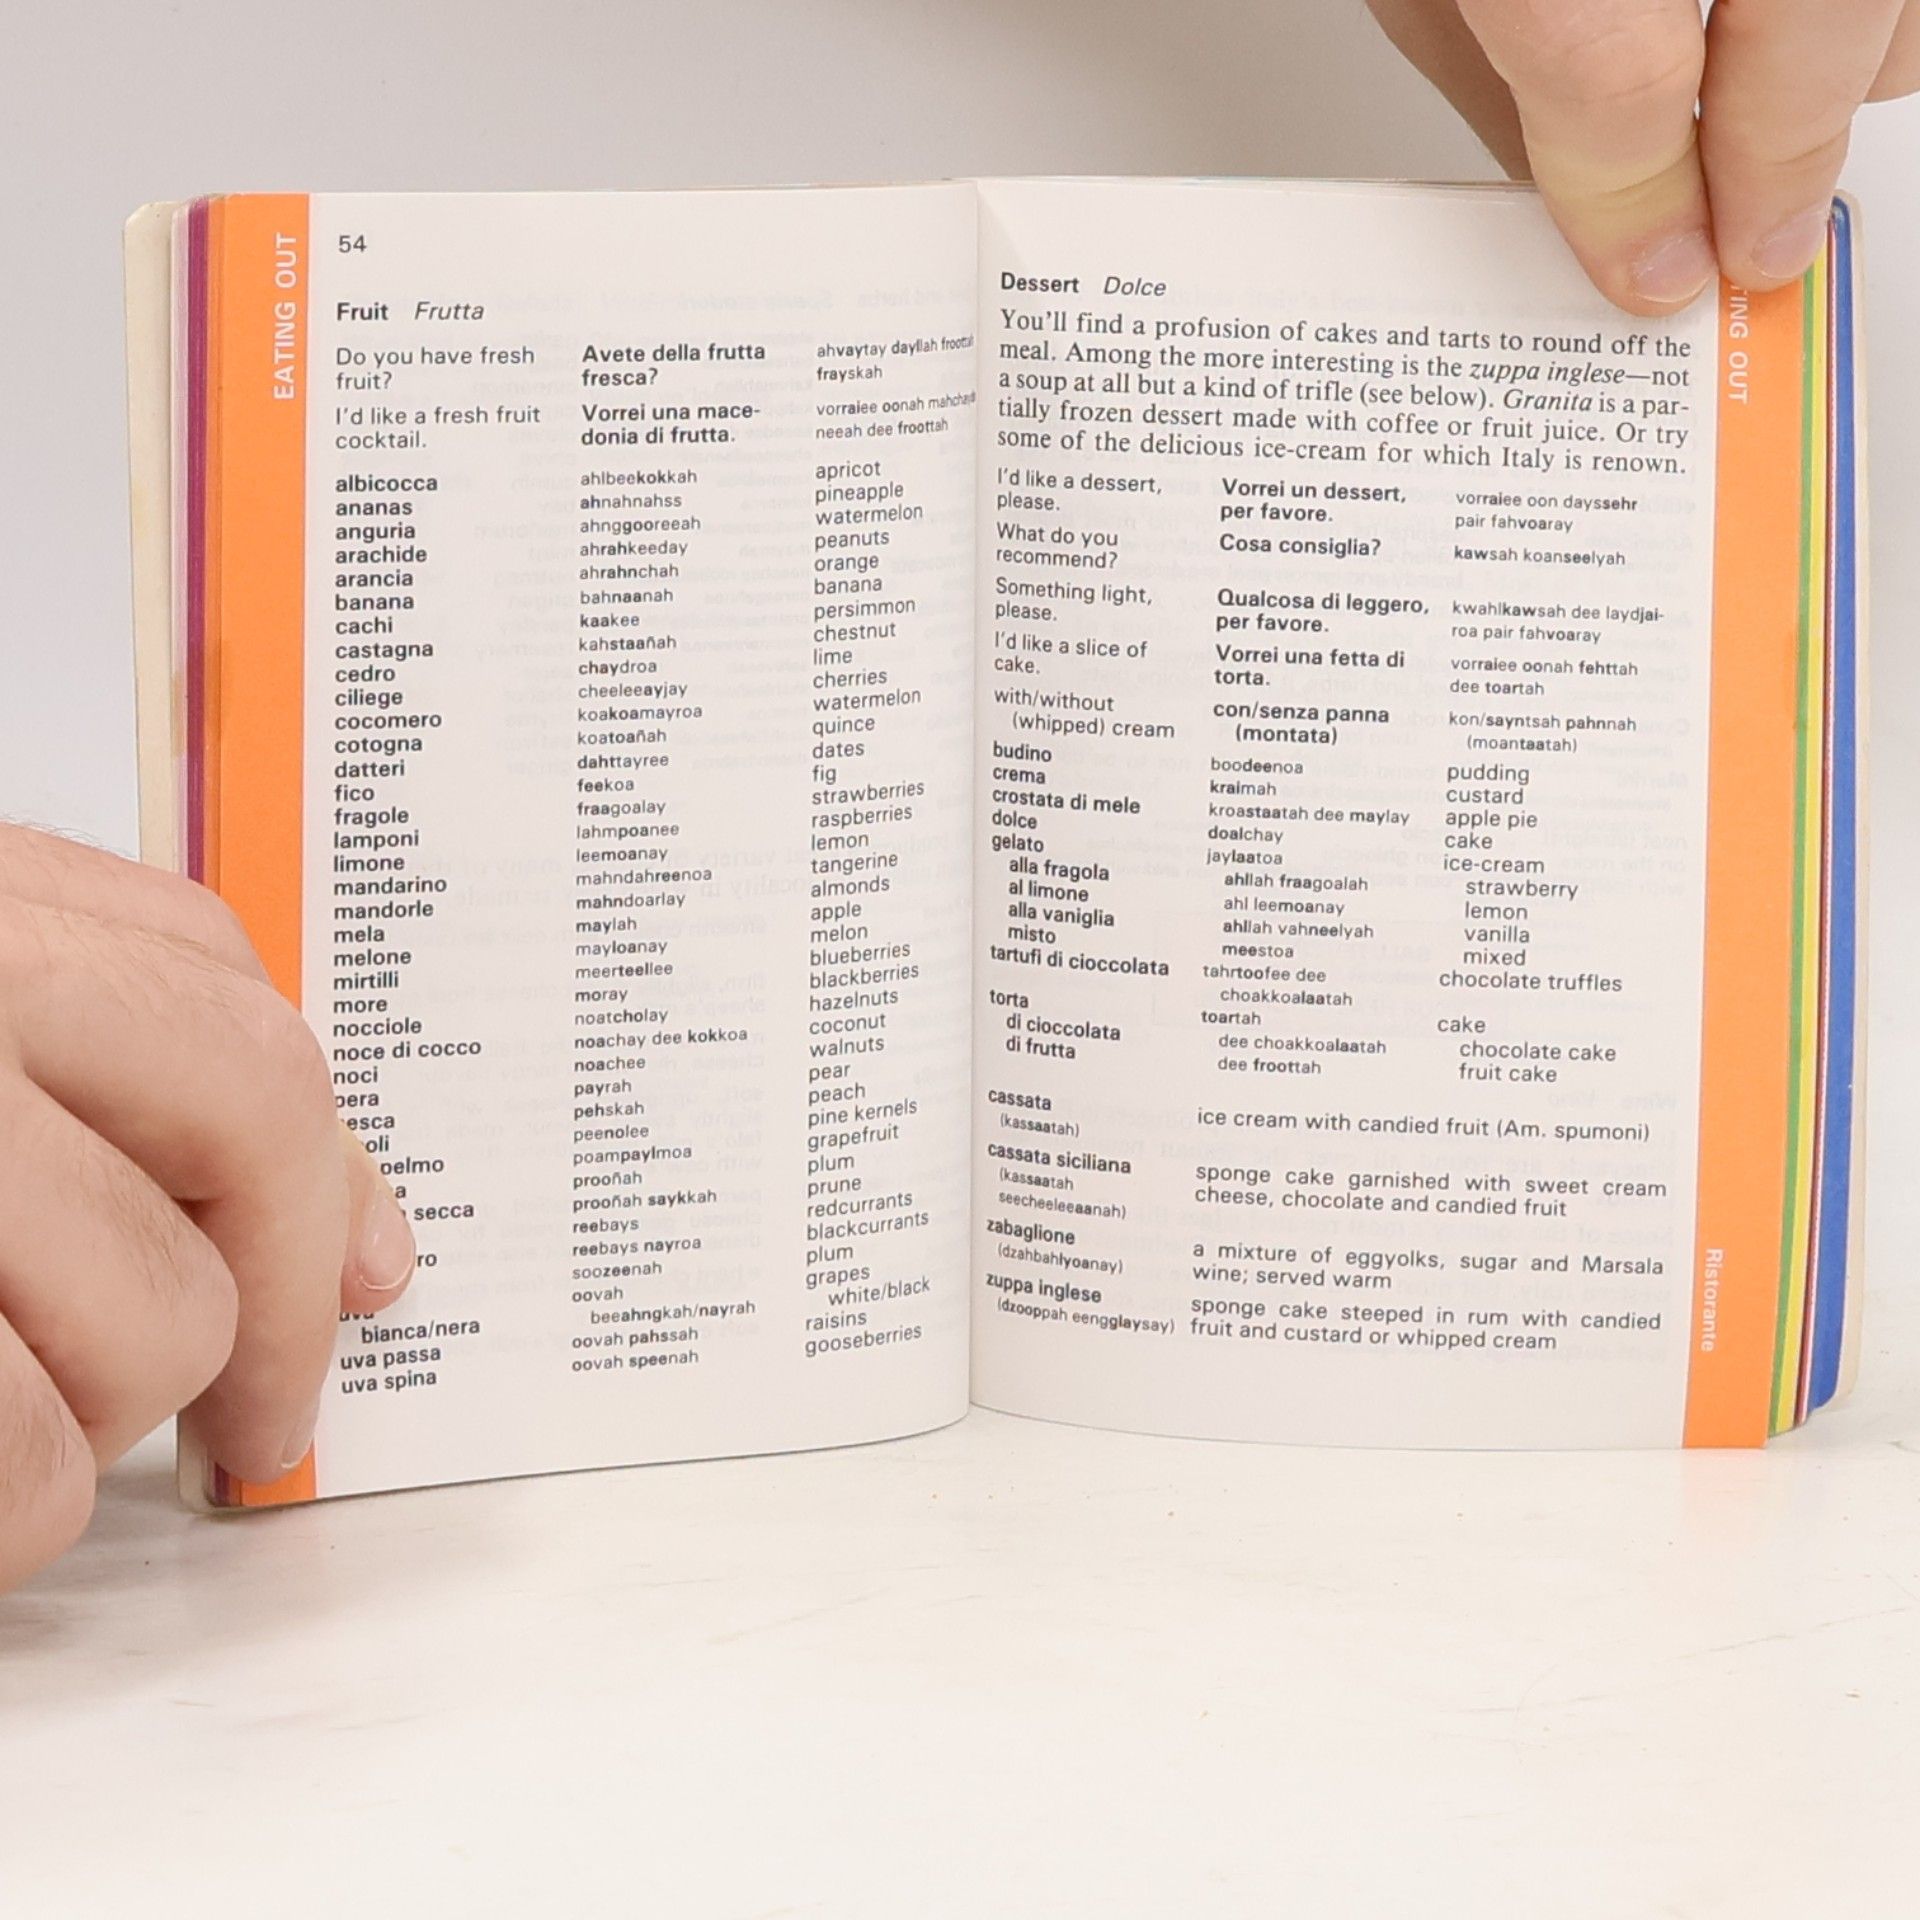 EATING OUT
54
Fruit Frutta
Do you have fresh fruit? Avete della frutta fresca? ahvaytay dayllah froottah frayskah
I'd like a fresh fruit cocktail. Vorrei una mace-donia di frutta. vorraiee oonah neeah dee froottah
albicocca ahlbeekokkah apricot
ananas ahnahnahss pineapple
anguria ahnggooreeah watermelon
arachide ahrahkeeday peanuts
arancia ahrahnchah orange
banana bahnaanah banana
cachi kaakee persimmon
castagna kahstaañah chestnut
cedro chaydroa lime
ciliege cheeleeayjay cherries
cocomero koakoamayroa watermelon
cotogna koatoañah quince
datteri dahttayree dates
fico feekoa fig
fragole fraagoalay strawberries
lamponi lahmpoanee raspberries
limone leemoanay lemon
mandarino mahndahreenoa tangerine
mandorle mahndoarlay almonds
mela maylah apple
melone mayloanay melon
mirtilli meerteellee blueberries
more moray blackberries
nocciole noatcholay hazelnuts
noce di cocco noachay dee kokkoa coconut
noci noachee walnuts
pera payrah pear
pehskah peach
peenolee pine kernels
poampaylmoa grapefruit
prooñah plum
secca prooñah saykkah prune
reebays redcurrants
reebays nayroa blackcurrants
soozeenah plum
oovah grapes
bianca/nera beeahngkah/nayrah white/black
uva passa oovah pahssah raisins
uva spina oovah speenah gooseberries
Dessert Dolce
You'll find a profusion of cakes and tarts to round off the
meal. Among the more interesting is the zuppa inglese—not
a soup at all but a kind of trifle (see below). Granita is a par-
tially frozen dessert made with coffee or fruit juice. Or try
some of the delicious ice-cream for which Italy is renown.
I'd like a dessert, please. Vorrei un dessert, per favore. vorraiee oon dayssehr pair fahvoaray
What do you recommend? Cosa consiglia? kawsah koanseelyah
Something light, please. Qualcosa di leggero, per favore. kwahlkawsah dee laydjai-roa pair fahvoaray
I'd like a slice of cake. Vorrei una fetta di torta. vorraiee oonah fehttah dee toartah
with/without (whipped) cream con/senza panna (montata) kon/sayntsah pahnnah (moantaatah)
budino boodeenoa pudding
crema kraimah custard
crostata di mele kroastaatah dee maylay apple pie
dolce doalchay cake
gelato jaylaatoa ice-cream
alla fragola ahllah fraagoalah strawberry
al limone ahl leemoanay lemon
alla vaniglia ahllah vahneelyah vanilla
misto meestoa mixed
tartufi di cioccolata tahrtoofee dee choakkoalaatah chocolate truffles
torta toartah cake
di cioccolata dee choakkoalaatah chocolate cake
di frutta dee froottah fruit cake
cassata (kassaatah) ice cream with candied fruit (Am. spumoni)
cassata siciliana (kassaatah seecheeleeaanah) sponge cake garnished with sweet cream cheese, chocolate and candied fruit
zabaglione (dzahbahlyoanay) a mixture of eggyolks, sugar and Marsala wine; served warm
zuppa inglese (dzooppah eengglaysay) sponge cake steeped in rum with candied fruit and custard or whipped cream
OUT
Ristorante